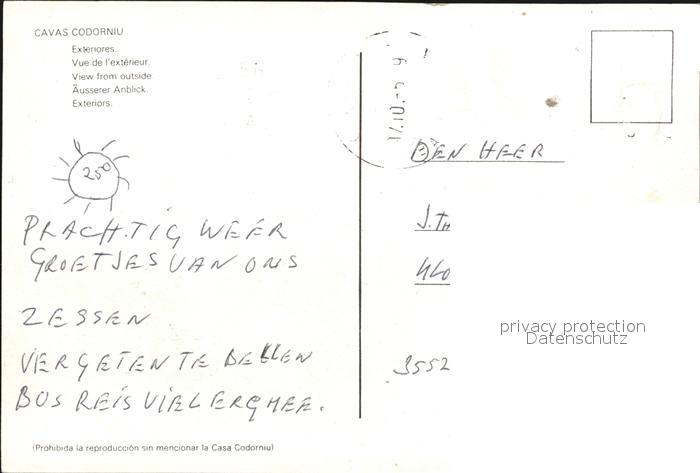 CAVAS CODORNIU
Exteriores.
Vue de l'extérieur.
View from outside.
Äusserer Anblick.
Exteriors.
25°
PRACHTIG WEER
GROETJES VAN ONS
ZESSEN
VERGETEN TE BELLEN
BUS REIS VIEL ERG MEE.
(Prohibida la reproducción sin mencionar la Casa Codorniu)
DEN HEER
J.TH
3552
privacy protection
Datenschutz